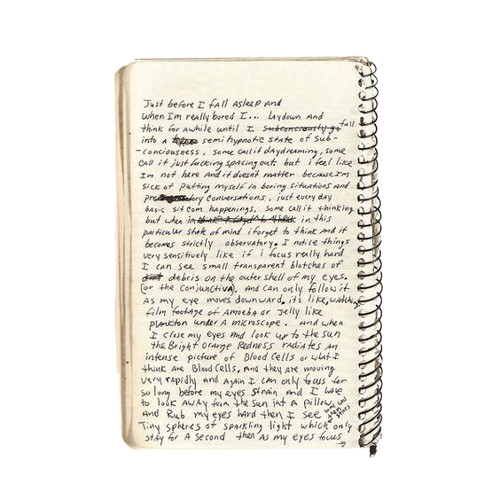 Just before I fall asleep and
when I'm really bored I... laydown and
think for awhile until I subconciously go fall
into a semi hypnotic state of sub-
-conciousness, some call it daydreaming, some
call it just fucking spacing out but i feel like
Im not here and it doesnt matter because I'm
sick of putting myself in boring situations and
conversations, just every day
basic sit com happenings, some call it thinking
but when in this
particular state of mind i forget to think and it
becomes strictly observatory. I notice things
very sensitively like if i focus really hard
I can see small transparent blotches of
debris on the outer shell of my eyes.
(or the conjunctiva). and can only follow it
as my eye moves downward. it's like watching
film footage of Amoeba or Jelly like
plankton under a microscope. And when
I close my eyes and look up to the sun
the Bright orange Redness radiates an
intense picture of Blood cells or what I
think are Blood cells. and they are moving
very rapidly and again I can only focus for
so long before my eyes strain and I have
to look away from the sun into a pillow
and Rub my eyes hard then I see
Tiny spheres of sparkling light which only
stay for a second then as my eyes focus